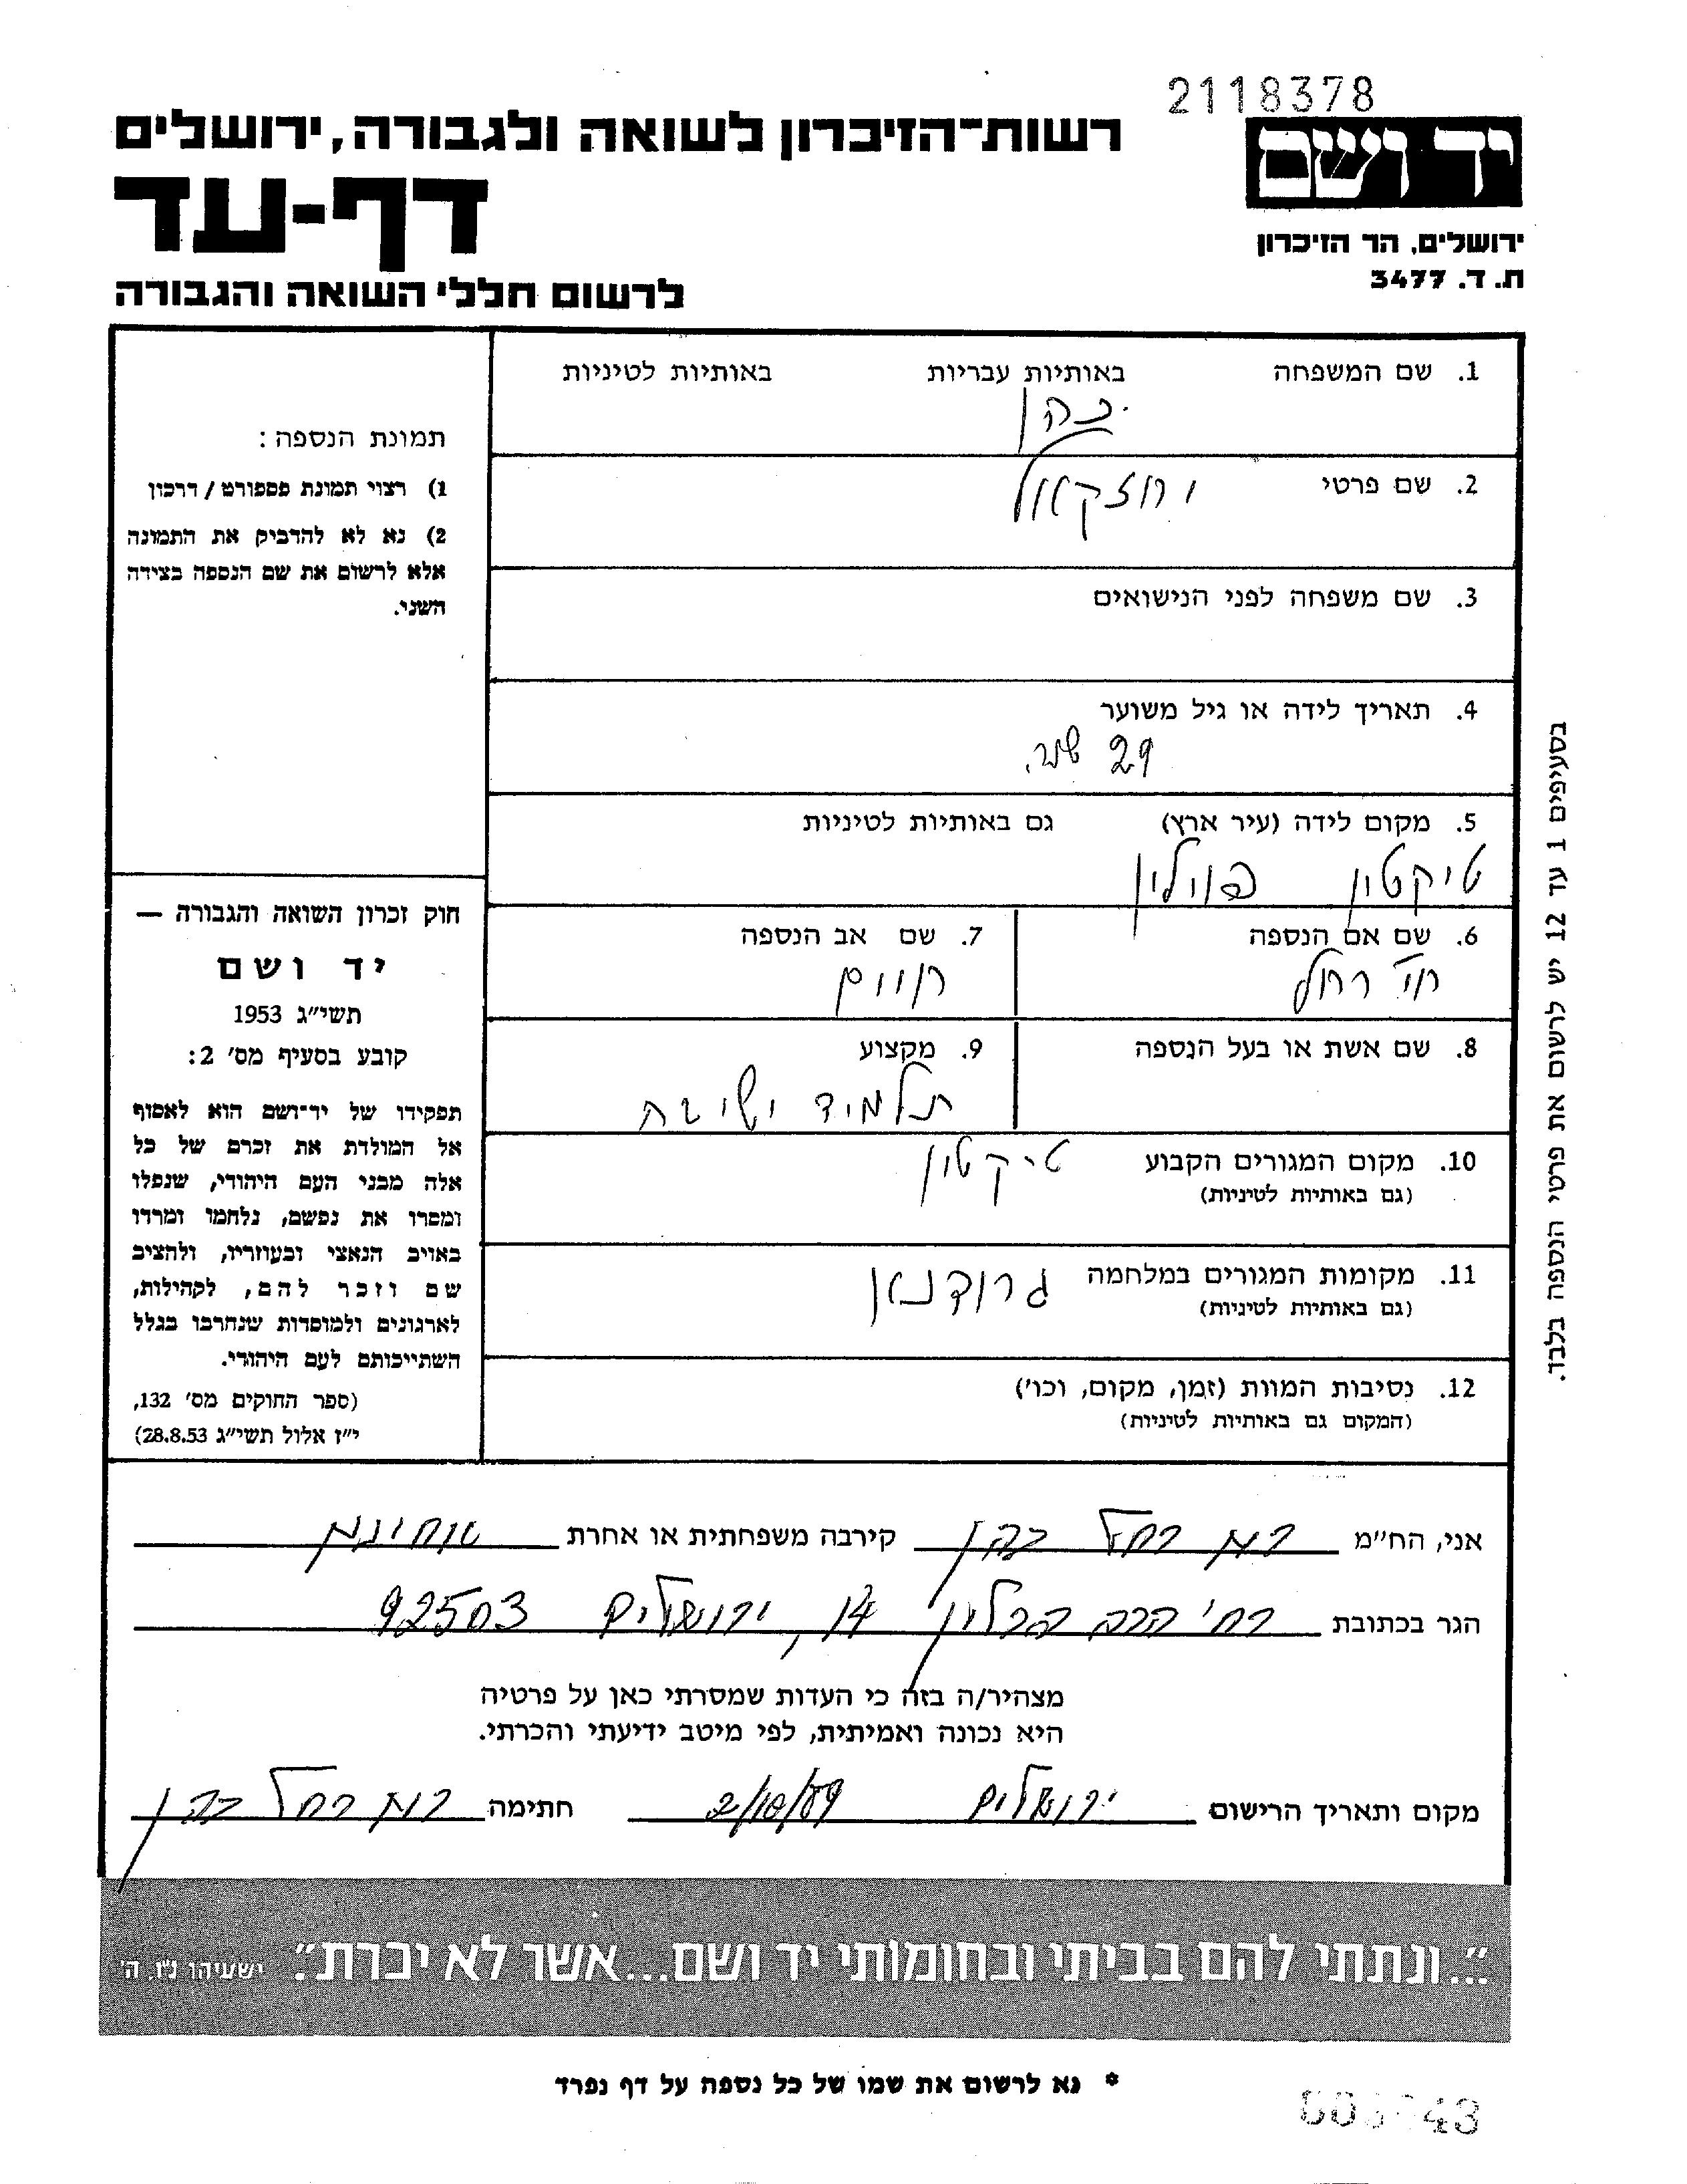 2118378
רשות־הזיכרון לשואה ולגבורה, ירושלים
יד ושם
דף-עד
ירושלים, הר הזיכרון
ת. ד. 3477
לרשום חללי השואה והגבורה
1. שם המשפחה באותיות עבריות באותיות לטיניות
כהן
2. שם פרטי
יחזקאל
3. שם משפחה לפני הנישואים
4. תאריך לידה או גיל משוער
29 שנה.
5. מקום לידה (עיר ארץ) גם באותיות לטיניות
טיקטין פולין
6. שם אם הנספה
רחל
7. שם אב הנספה
חיים
8. שם אשת או בעל הנספה
9. מקצוע
תלמיד ישיבה
10. מקום המגורים הקבוע
(גם באותיות לטיניות)
טיקטין
11. מקומות המגורים במלחמה
(גם באותיות לטיניות)
12. נסיבות המוות (זמן, מקום, וכו')
(המקום גם באותיות לטיניות)
תמונת הנספה:
1) רצוי תמונת פספורט / דרכון
2) נא לא להדביק את התמונה
אלא לרשום את שם הנספה בצידה
השני.
חוק זכרון השואה והגבורה —
יד ושם
תשי"ג 1953
קובע בסעיף מס' 2:
תפקידו של יד־ושם הוא לאסוף
אל המולדת את זכרם של כל
אלה מבני העם היהודי, שנפלו
ומסרו את נפשם, נלחמו ומרדו
באויב הנאצי ובעוזריו, ולהציב
שם וזכר להם, לקהילות,
לארגונים ולמוסדות שנחרבו בגלל
השתייכותם לעם היהודי.
(ספר החוקים מס' 132,
י"ז אלול תשי"ג 28.8.53)
בסעיפים 1 עד 12 יש לרשום את פרטי הנספה בלבד.
אני, הח"מ רחל כהן קירבה משפחתית או אחרת
הגר בכתובת רח' הרב ברלין 14, ירושלים 92503
מצהיר/ה בזה כי העדות שמסרתי כאן על פרטיה
היא נכונה ואמיתית, לפי מיטב ידיעתי והכרתי.
מקום ותאריך הרישום ירושלים 2/10/89 חתימה רחל כהן
"...ונתתי להם בביתי ובחומותי יד ושם...אשר לא יכרת". ישעיהו נ"ו, ה'
* נא לרשום את שמו של כל נספה על דף נפרד